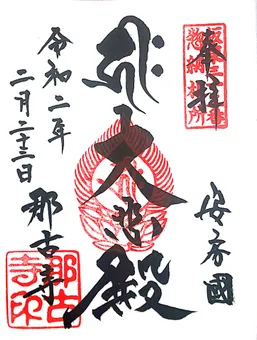 奉拝
坂東三十三番
惣納札所
安房國
大悲殿
令和二年
二月二十二日
那古寺
那古
寺印